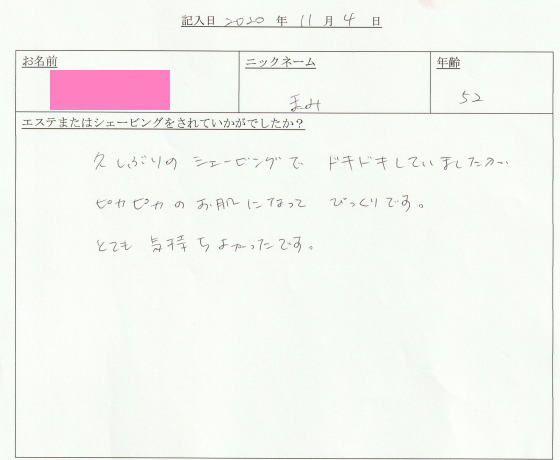 記入日 2020 年 11 月 4 日
お名前 ニックネーム 年齢
まみ 52
エステまたはシェービングをされていかがでしたか？
久しぶりのシェービングで ドキドキしていましたが
ピカピカのお肌になって びっくりです。
とても 気持ちよかったです。